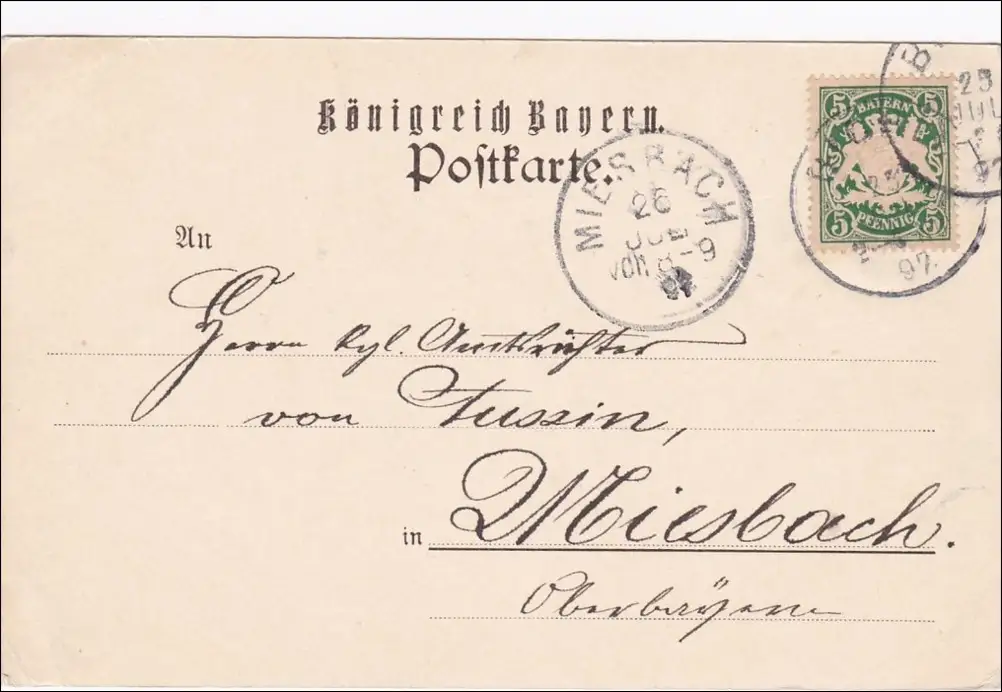 Königreich Bayern.
Postkarte.
5 BAYERN 5
5 PFENNIG 5
25
JUL
97.
MIESBACH
26
JUL
VON 8-9
97
An
Herrn kgl. Amtsrichter
von Tussin,
in Miesbach.
Oberbayern